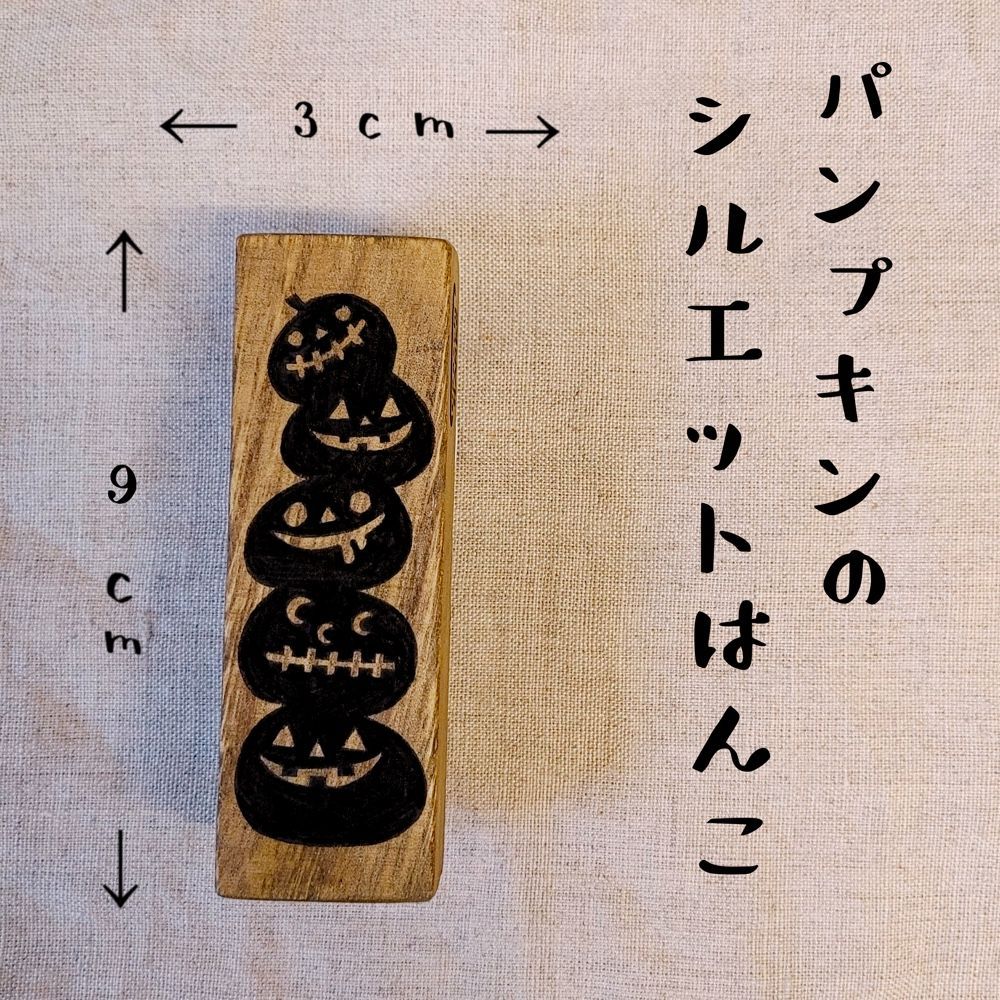 パンプキンの
シルエットはんこ
← 3 cm →
↑ 9 cm ↓